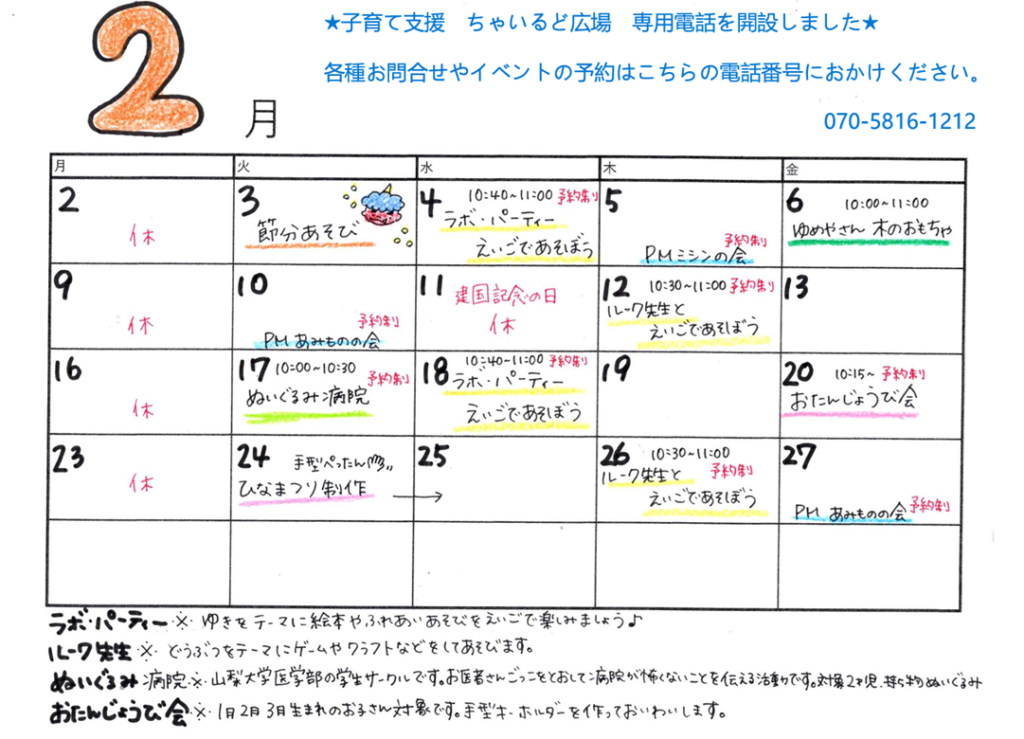 ★子育て支援 ちゃいるど広場 専用電話を開設しました★
各種お問合せやイベントの予約はこちらの電話番号におかけください。
070-5816-1212
2月
月 火 水 木 金
2
休
3
節分あそび
4 10:40~11:00 予約制
ラボ・パーティー
えいごであそぼう
5
予約制
PMミシンの会
6 10:00~11:00
ゆめやさん 木のおもちゃ
9
休
10
予約制
PM あみものの会
11
建国記念の日
休
12 10:30~11:00 予約制
ルーク先生と
えいごであそぼう
13
16
休
17 10:00~10:30
予約制
ぬいぐるみ病院
18 10:40~11:00 予約制
ラボ・パーティー
えいごであそぼう
19
20 10:15~ 予約制
おたんじょうび会
23
休
24 手型ぺったん
ひなまつり制作 →
25
26 10:30~11:00
ルーク先生と 予約制
えいごであそぼう
27
予約制
PM あみものの会
ラボ・パーティー ※ ゆきをテーマに絵本やふれあいあそびをえいごで楽しみましょう♪
ルーク先生 ※ どうぶつをテーマにゲームやクラフトなどをしてあそびます。
ぬいぐるみ病院 ※ 山梨大学医学部の学生サークルです。お医者さんごっこをとおして病院が怖くないことを伝える活動です。対象2才児、持ち物ぬいぐるみ
おたんじょうび会 ※ 1月2月3月生まれのお子さん対象です。手型キーホルダーを作っておいわいします。